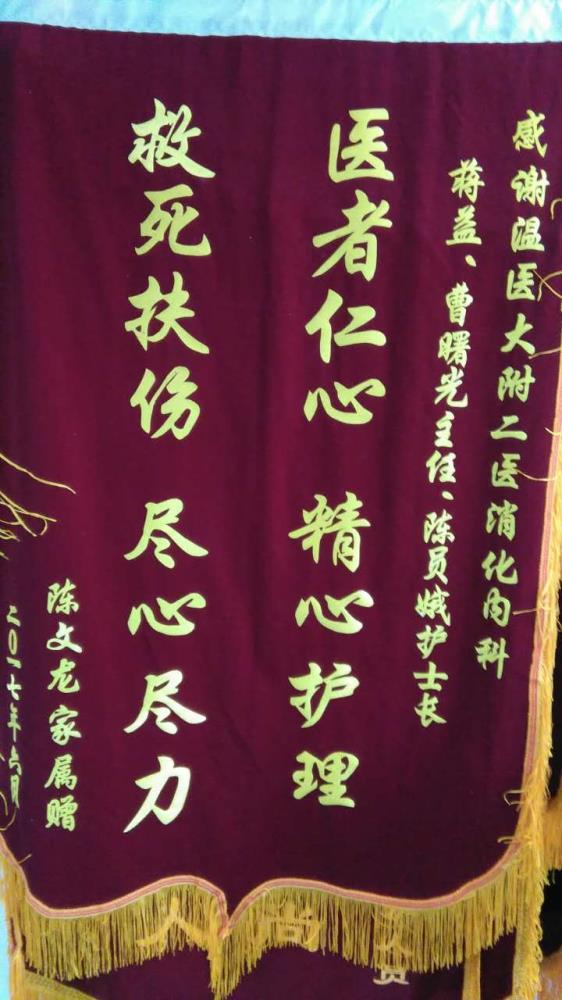 感谢温医大附二医消化内科
蒋益、曹曙光主任、陈员娥护士长
医者仁心 精心护理
救死扶伤 尽心尽力
陈文龙家属赠
二0一七年六月